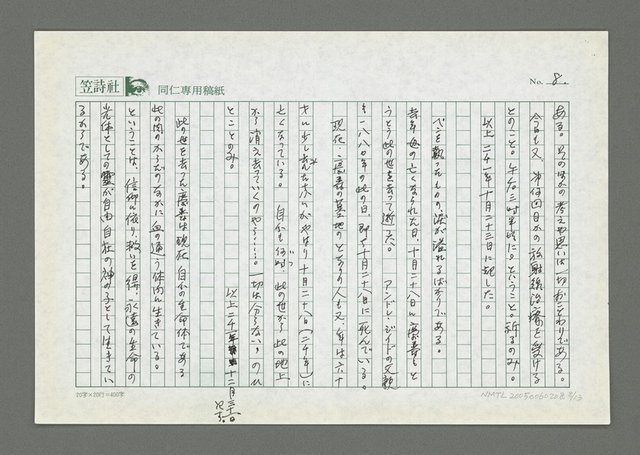 笠詩社
同仁専用稿紙
No. 8.
ある。そのほかの考えや思いは一切おことわりである。
今日も又、第何回目かの放射線治療を受ける
とのこと。午后三時半時に。ということ。祈るのみ。
以上二千一年十月二十三日に記した。
ペンを執ったものの、涙が溢れるばかりである。
去年母の亡くなられた日、十月二十八日に恵春もと
うとう此の世を去って逝った。 アンドレ・ジイドの父親
も一八八〇年の此の日、即ち十月二十八日に死んでいる。
現在、恵春の墓地のとなりの人も又、年は六十
才少し
やはり十月二十八日(二千年)に
亡くなっている。 自分も何時、此の世から此の地上
から消え去っていくのやら……。一切は分らない。のみ
とことのみ。
以上二千一年 十二月三十日 記す。
此の世を去った恵春は現在自分の生命体である
此の肉のからだのなかに血の通う体内に生きている。
ということは、信仰に依り救いを得、永遠の生命の
光体としての霊が自由自在の神の子として生きてい
るからである。
20字×20行=400字
NMTL20050060208 8/13